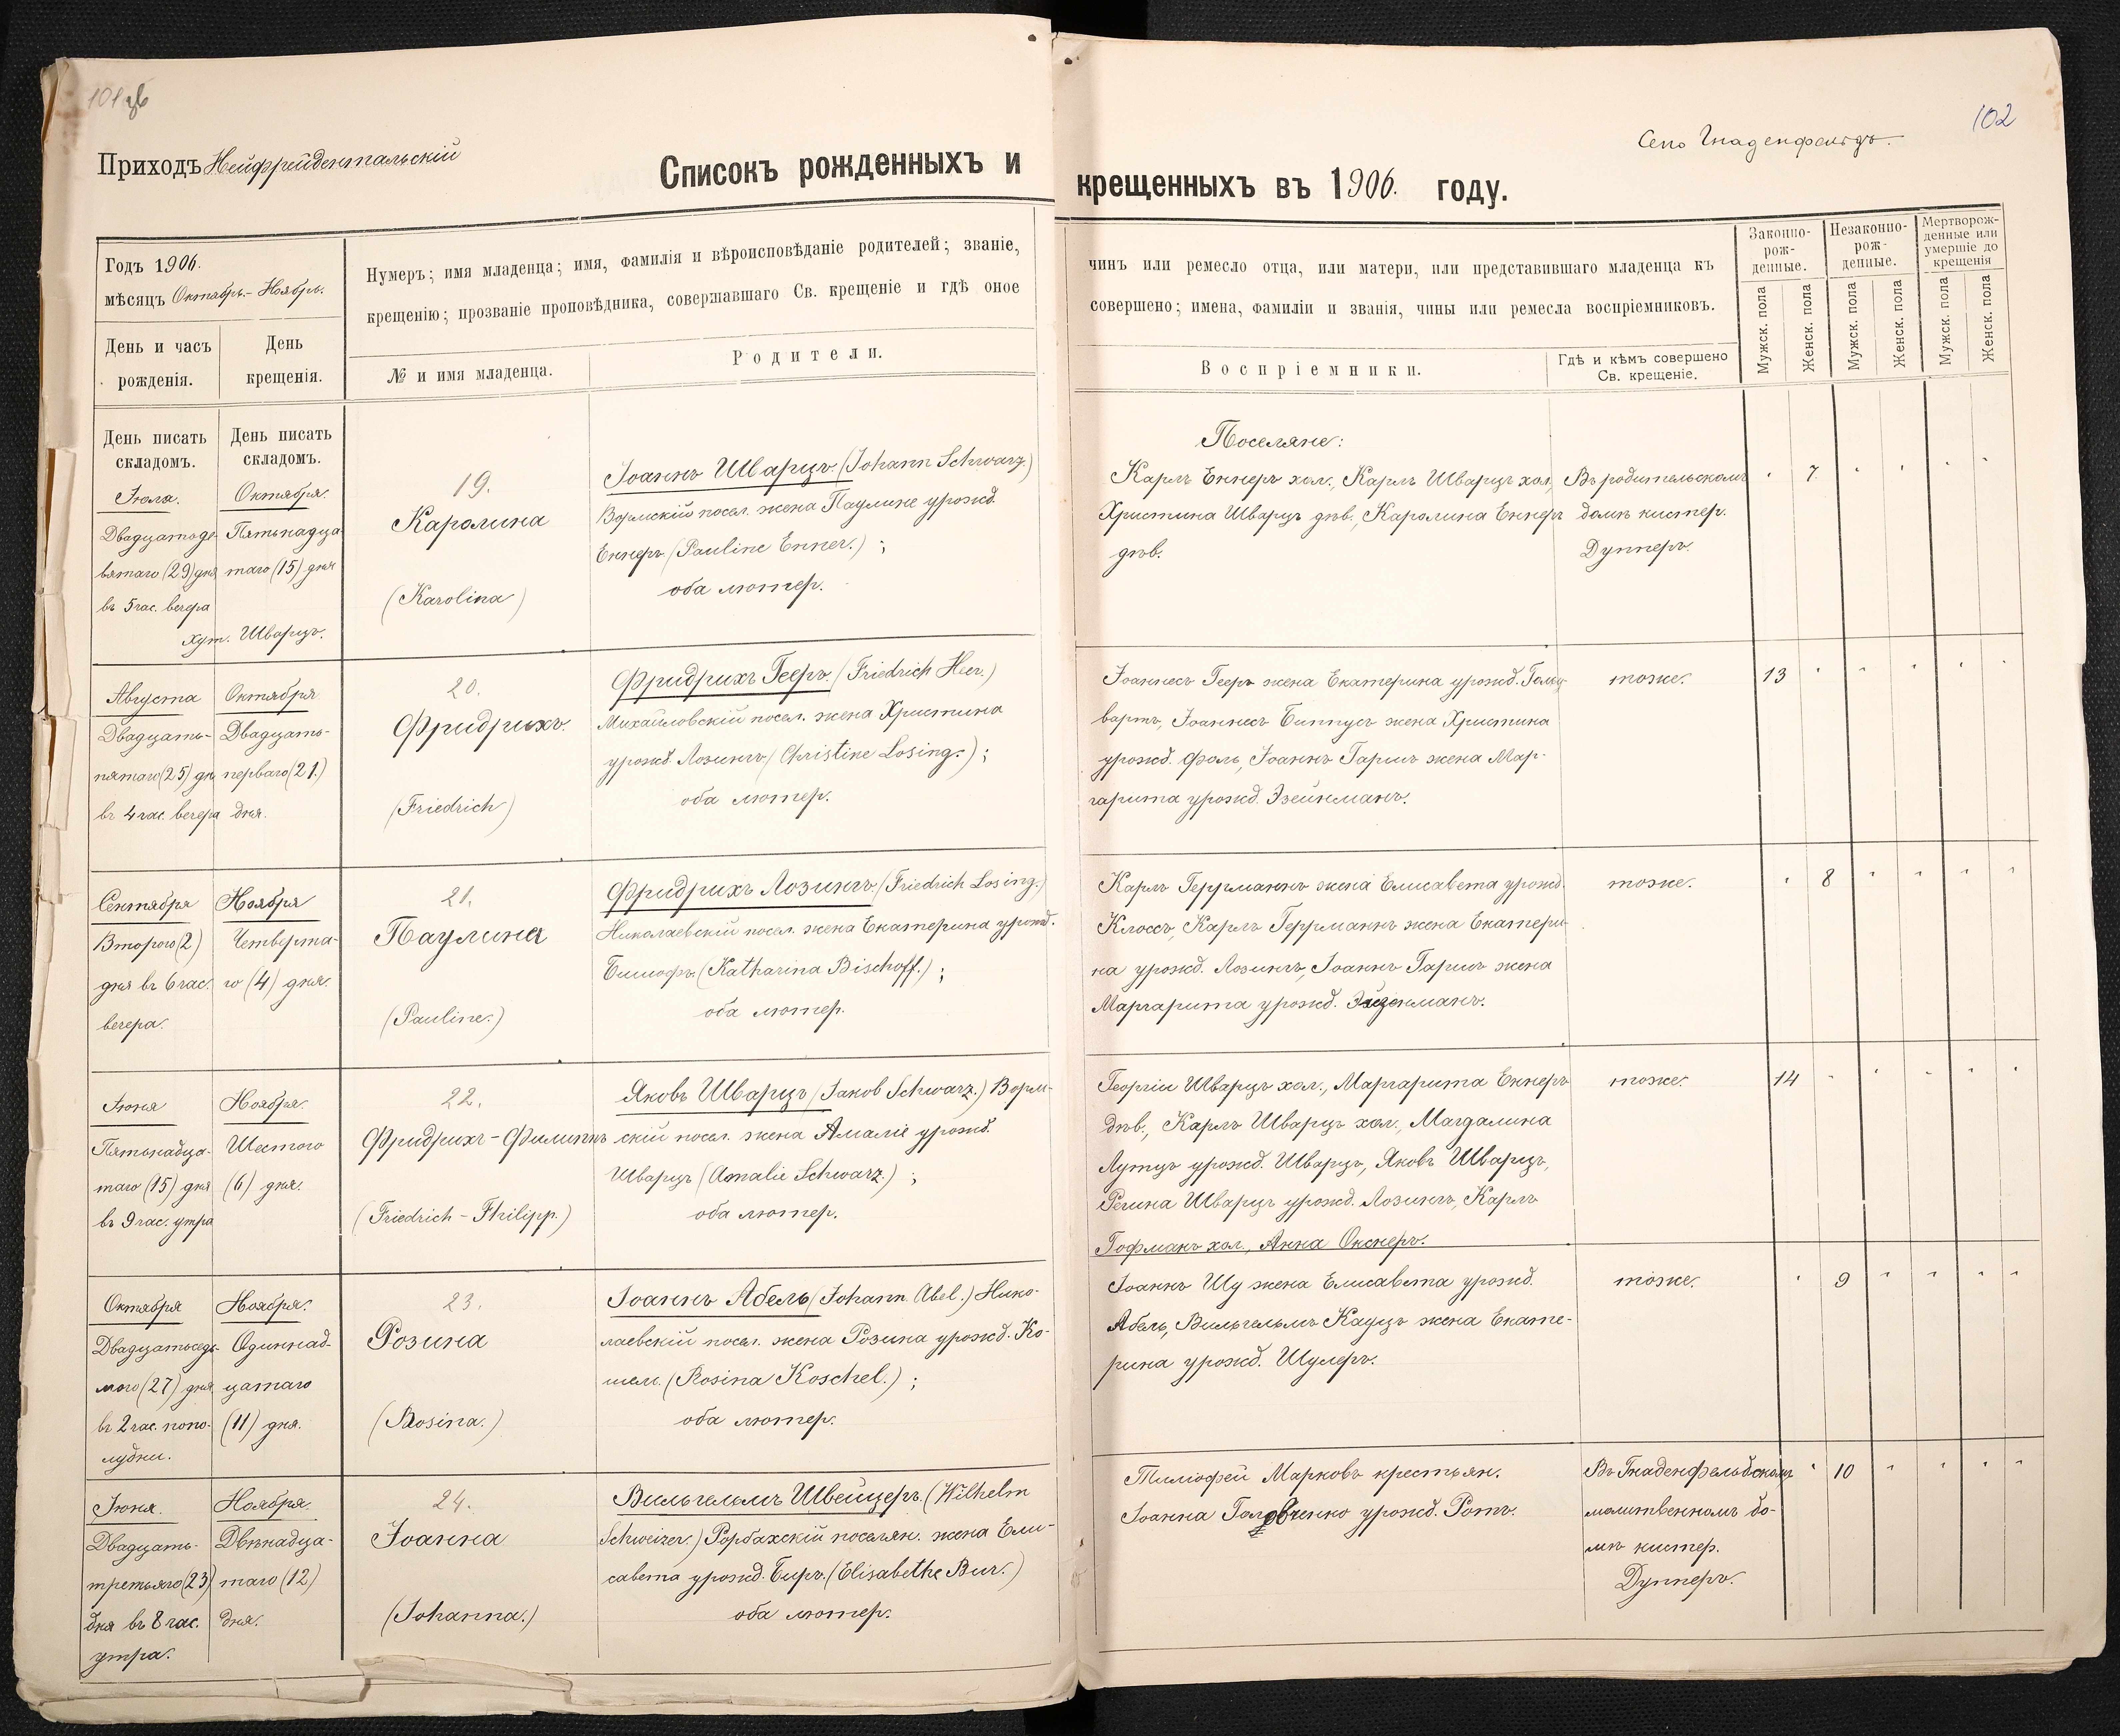 101 об
102
Село Гнаденфельдъ.
Приходъ Нейфрейдентальскій
Списокъ рожденныхъ и
крещенныхъ въ 1906. году.
Годъ 1906.
мѣсяцъ Октябрь.- Ноябрь.
День и часъ
рожденія.
День
крещенія.
Нумеръ; имя младенца; имя, фамилія и вѣроисповѣданіе родителей; званіе,
крещенію; прозваніе проповѣдника, совершавшаго Св. крещеніе и гдѣ оное
№ и имя младенца.
Родители.
чинъ или ремесло отца, или матери, или представившаго младенца къ
совершено; имена, фамиліи и званія, чины или ремесла воспріемниковъ.
Воспріемники.
Гдѣ и кѣмъ совершено
Св. крещеніе.
Законно-
рож-
денные.
Незаконно-
рож-
денные.
Мертворож-
денные или
умершіе до
крещенія
Мужск. пола
Женск. пола
Мужск. пола
Женск. пола
Мужск. пола
Женск. пола
День писать
складомъ.
День писать
складомъ.
Іюля.
Двадцатоде-
вятаго (29) дня
въ 5 час. вечера
Октября.
Пятьнадца-
таго (15) дня
хут. Шварцъ.
19.
Каролина
(Karolina)
Іоаннъ Шварцъ. (Johann Schwarz.)
Вормскій посел. жена Паулине урожд.
Еннеръ (Pauline Enner.) ;
оба лютер.
Поселяне:
Карлъ Еннеръ хол., Карлъ Шварцъ хол,
Христина Шварцъ дѣв., Каролина Еннеръ
дѣв.
Въ родительскомъ
домѣ кистер.
Дупперъ.
" 7 " " " "
Августа
Двадцать-
пятаго (25) дн.
въ 4 час. вечера
Октября
Двадцать-
перваго (21.)
дня.
20.
Фридрихъ.
(Friedrich)
Фридрихъ Гееръ. (Friedrich Heer.)
Михайловскій посел. жена Христина
урожд. Лозингъ (Christine Losing.) ;
оба лютер.
Іоаннесъ Гееръ жена Екатерина урожд. Гольц-
вартъ, Іоаннесъ Биппусъ жена Христина
урожд. Фоль, Іоаннъ Гаришъ жена Мар-
гарита урожд. Эзейнманъ.
тоже.
13 " " " " "
Сентября
Второго (2)
дня въ 6 час.
вечера.
Ноября
Четверта-
го (4) дня.
21.
Паулина
(Pauline.)
Фридрихъ Лозингъ. (Friedrich Losing.)
Николаевскій посел. жена Екатерина урожд.
Бишофъ. (Katharina Bischoff.) ;
оба лютер.
Карлъ Геррманнъ жена Елисавета урожд.
Клоссъ, Карлъ Геррманнъ жена Екатери-
на урожд. Лозингъ, Іоаннъ Гаришъ жена
Маргарита урожд. Эйзенманъ.
тоже.
" 8 " " " "
Іюня
Пятьнадца-
таго (15) дня
въ 9 час. утра
Ноября.
Шестого
(6) дня.
22.
Фридрихъ-Филиппъ
(Friedrich-Philipp.)
Яковъ Шварцъ (Jakob Schwarz.) Ворм-
скій посел. жена Амаліе урожд.
Шварцъ (Amalie Schwarz.) ;
оба лютер.
Георгій Шварцъ хол., Маргарита Еннеръ
дѣв., Карлъ Шварцъ хол., Магдалина
Лутцъ урожд. Шварцъ, Яковъ Шварцъ,
Регина Шварцъ урожд. Лозингъ, Карлъ
Гофманъ хол., Анна Окснеръ.
тоже.
14 " " " " "
Октября
Двадцатьседь-
мого (27) дня
въ 2 час. попо-
лудни.
Ноября.
Одиннад-
цатаго
(11) дня.
23.
Розина
(Rosina.)
Іоаннъ Абель (Johann Abel.) Нико-
лаевскій посел. жена Розина урожд. Ко-
шель. (Rosina Koschel.) ;
оба лютер.
Іоаннъ Шу жена Елисавета урожд.
Абель, Вильгельмъ Кауцъ жена Екате-
рина урожд. Шулеръ.
тоже.
" 9 " " " "
Іюня.
Двадцать-
третьяго (23)
дня въ 8 час.
утра.
Ноября.
Двѣнадца-
таго (12)
дня.
24.
Іоанна
(Johanna.)
Вильгельмъ Швейцеръ. (Wilhelm
Schweizer.) Рорбахскій поселян. жена Ели-
савета урожд. Биръ. (Elisabethe Bur.)
оба лютер.
Тимофей Марковъ крестьян.
Іоанна Головченко урожд. Ротъ.
Въ Гнаденфельдскомъ
молитвенномъ до-
мѣ кистер.
Дупперъ.
" 10 " " " "